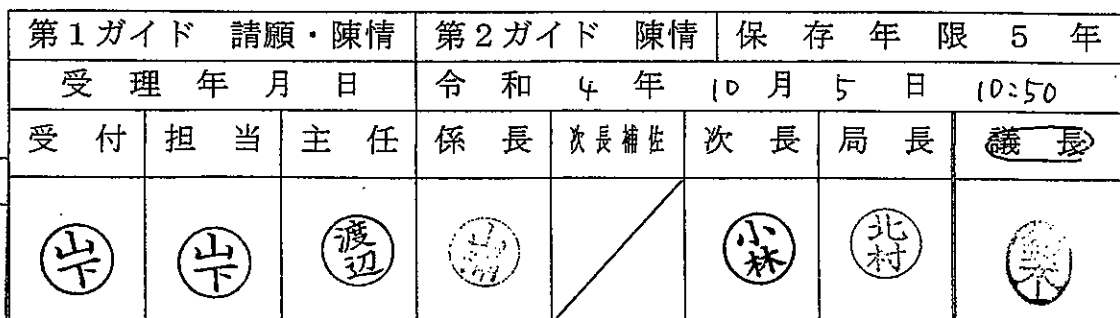 第1ガイド 請願・陳情 第2ガイド 陳情 保存年限5年
受理年月日 令和4年10月5日 10:50
受付 担当 主任 係長 次長補佐 次長 局長 議長
山下 山下 渡辺 小林 北村